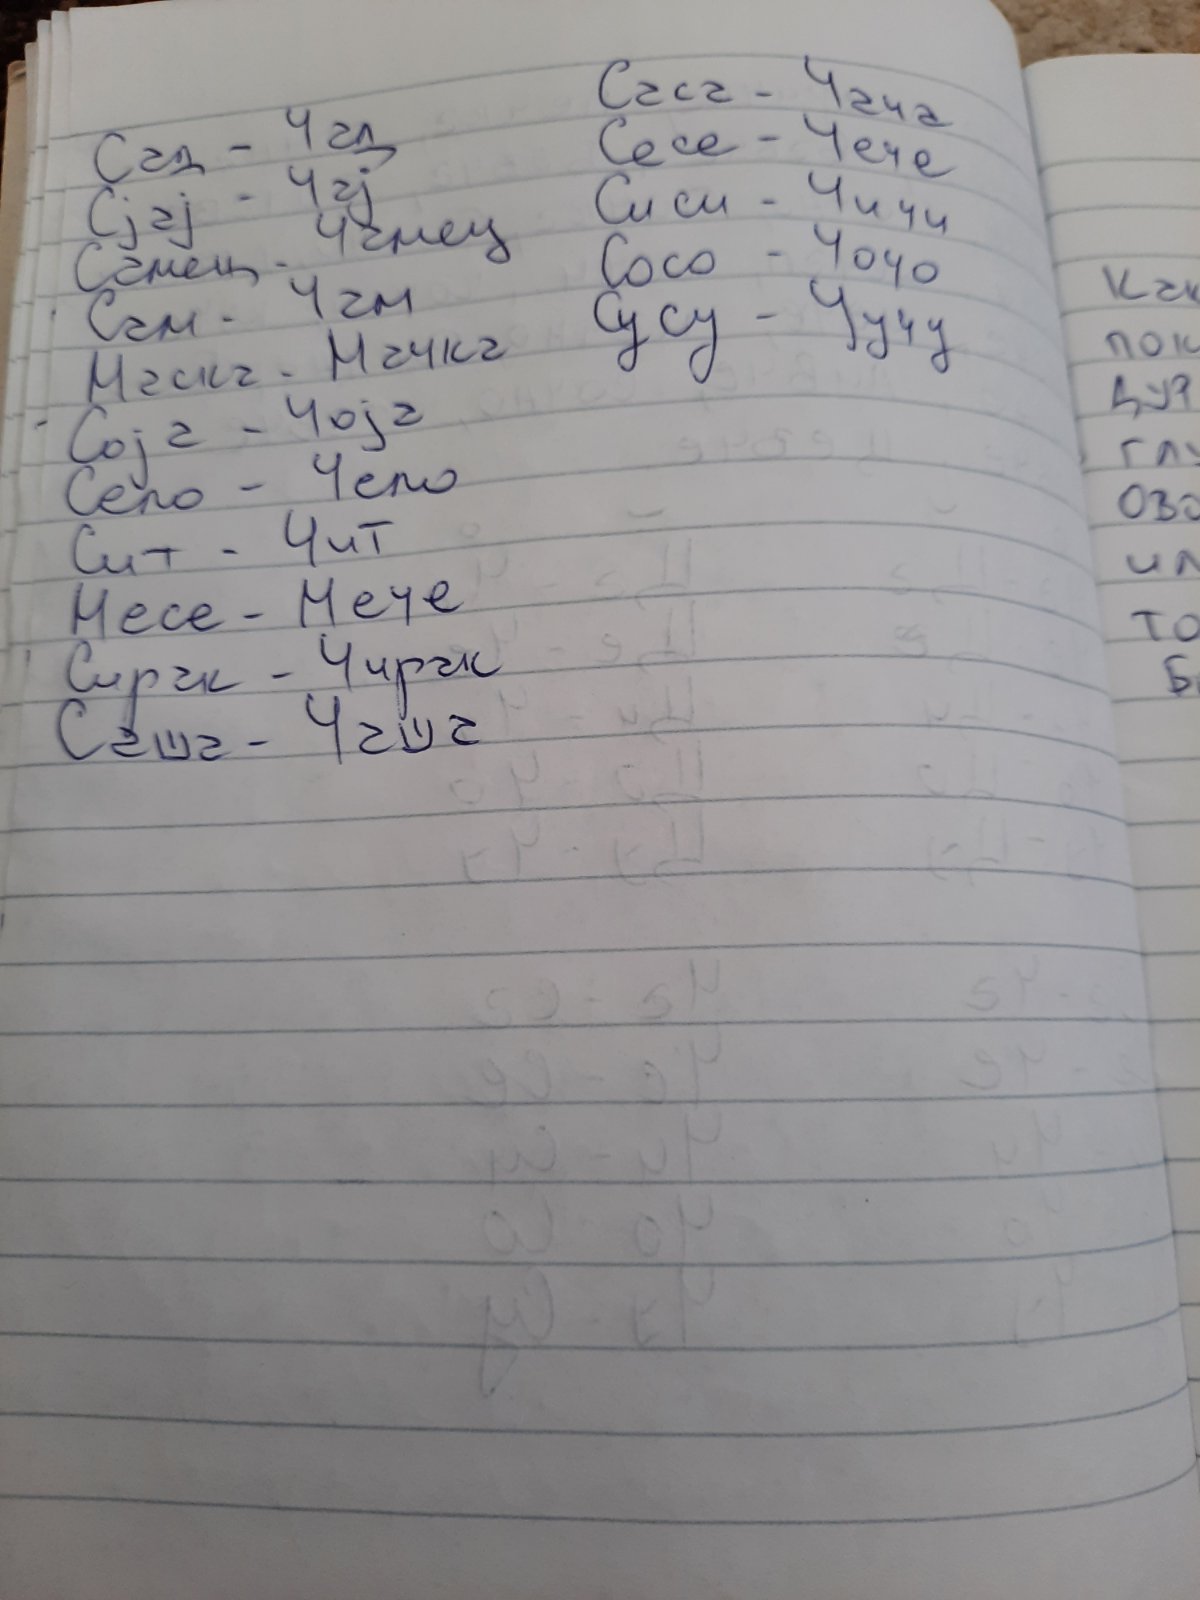 Сад - Чад
Сјај - Чај
Самец - Чамец
Сам - Чам
Маска - Мачка
Соја - Чоја
Село - Чело
Сит - Чит
Месе - Мече
Сирак - Чирак
Саша - Чаша
Саса - Чача
Сесе - Чече
Сиси - Чичи
Сосо - Чочо
Сусу - Чучу